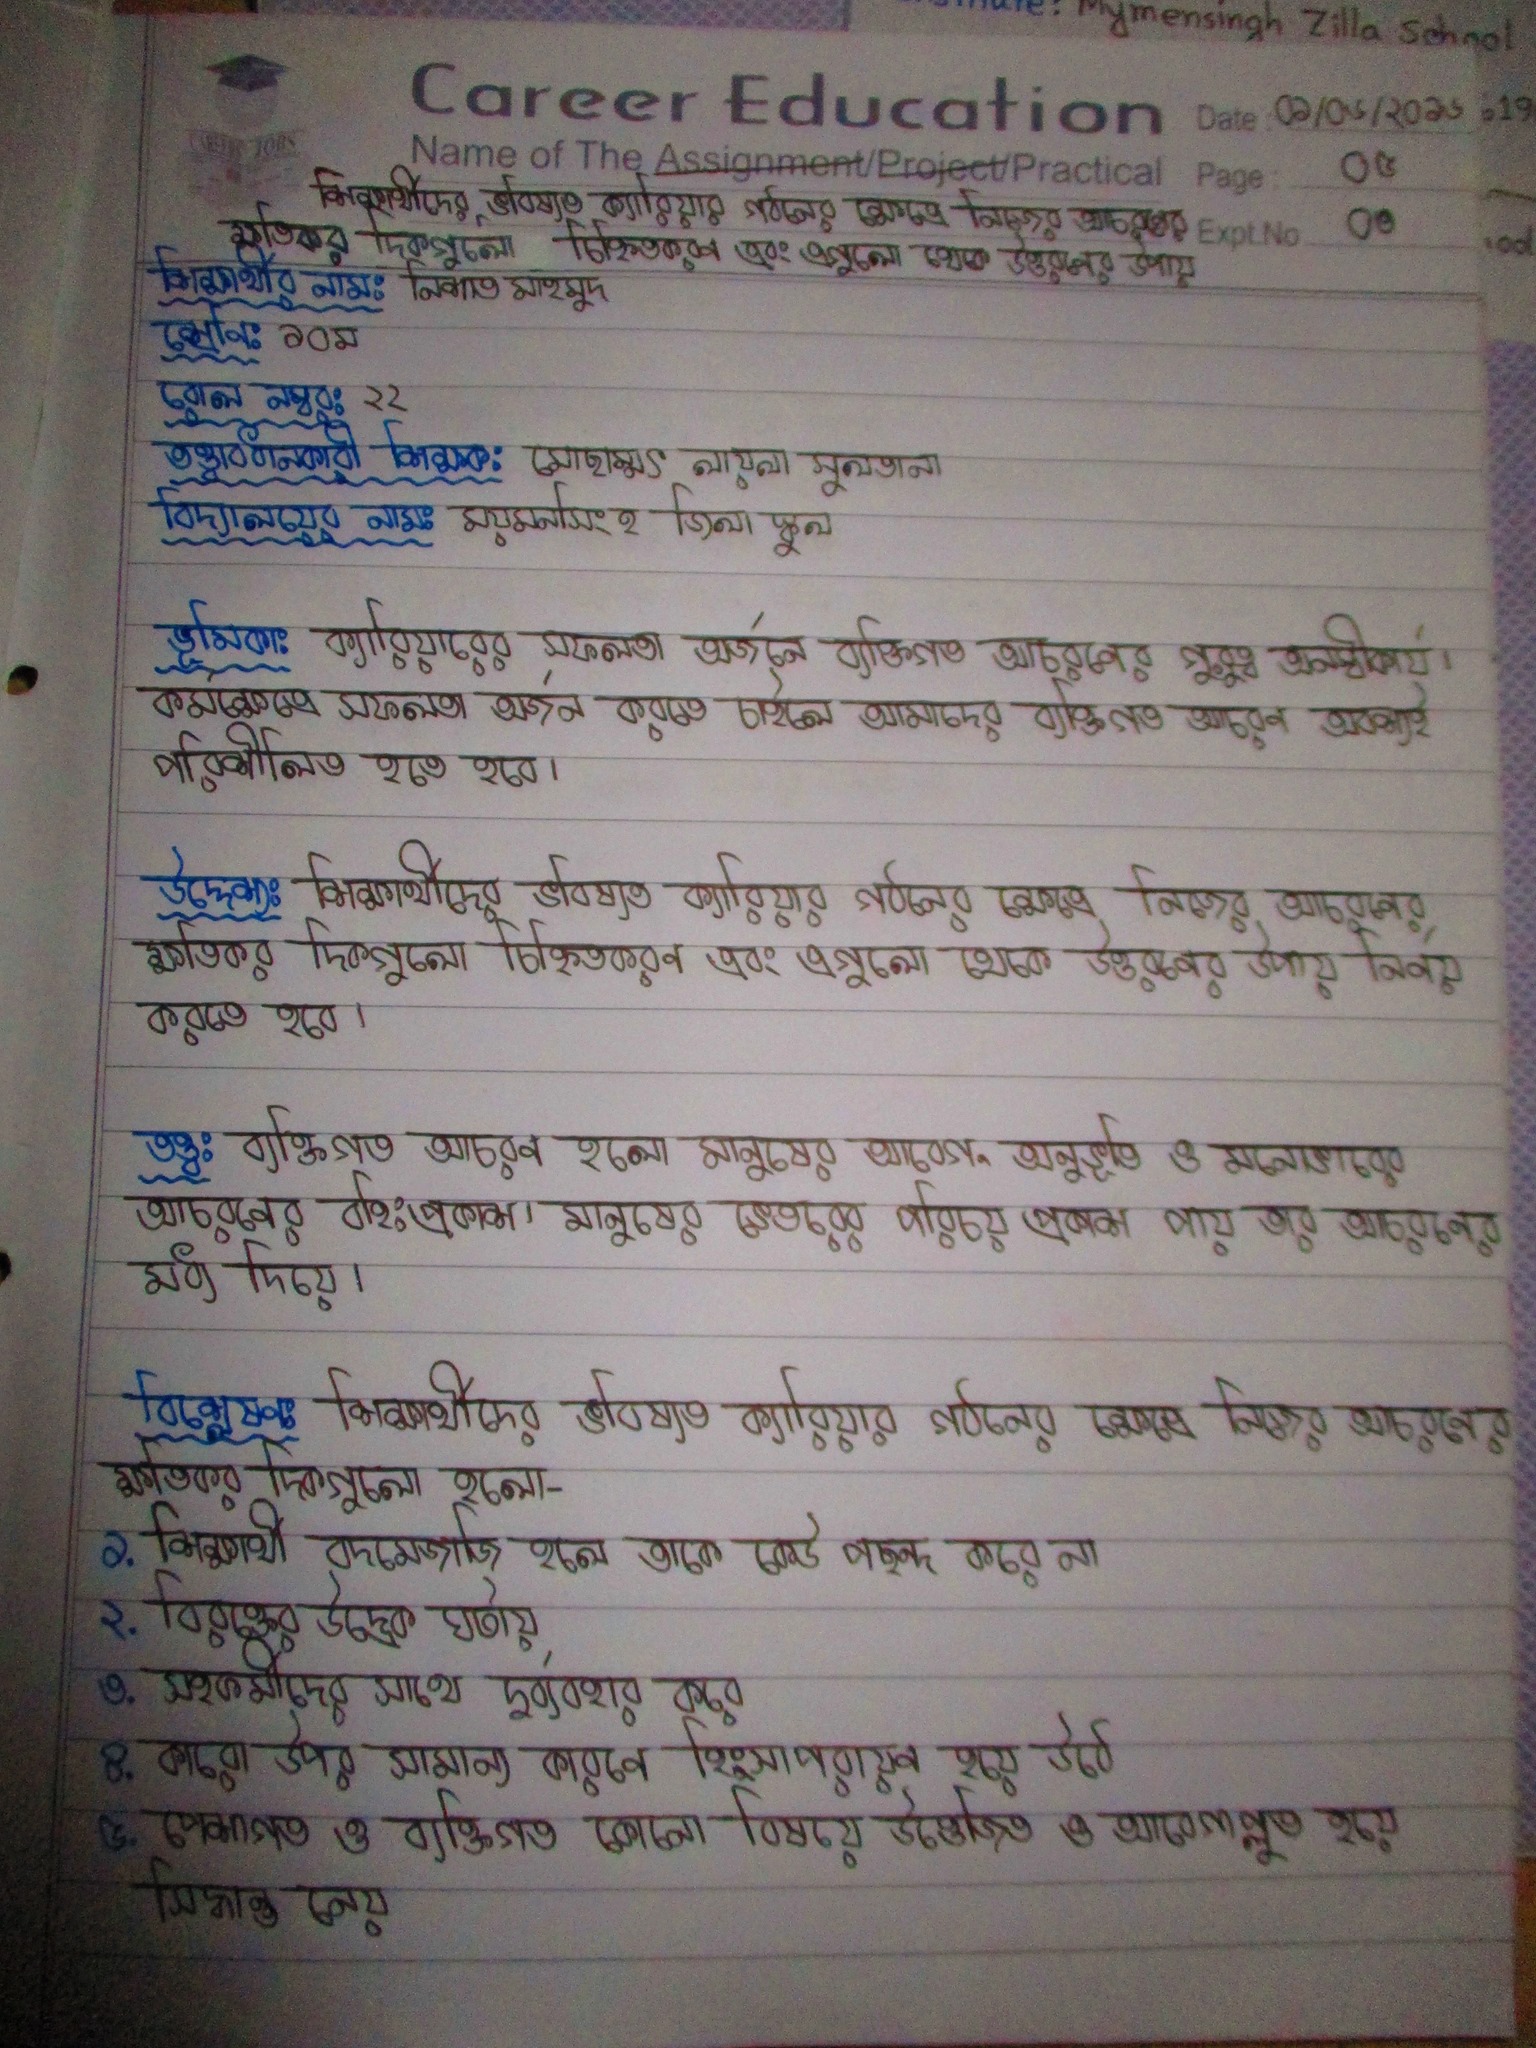 Mymensingh Zilla School
Career Education
Date:
Name of The Assignment/Project/Practical
Page: 05
শিক্ষার্থীদের ভবিষ্যত ক্যারিয়ার গঠনের ক্ষেত্রে নিজের আচরণের
Expt.No 03
ক্ষতিকর দিকগুলো চিহ্নিতকরণ এবং এগুলো থেকে উত্তরণের উপায়
শিক্ষার্থীর নামঃ নিশাত মাহমুদ
শ্রেনিঃ ১০ম
রোল নম্বরঃ ২২
তত্ত্বাবধানকারী শিক্ষকঃ লায়লা সুলতানা
বিদ্যালয়ের নামঃ ময়মনসিংহ জিলা স্কুল
ভূমিকাঃ ক্যারিয়ারের সফলতা অর্জনে ব্যক্তিগত আচরনের গুরুত্ব অনস্বীকার্য।
কর্মক্ষেত্রে সফলতা অর্জন করতে চাইলে আমাদের ব্যক্তিগত আচরন অবশ্যই
পরিশীলিত হতে হবে।
উদ্দেশ্যঃ শিক্ষার্থীদের ভবিষ্যত ক্যারিয়ার গঠনের ক্ষেত্রে নিজের আচরনের
ক্ষতিকর দিকগুলো চিহ্নিতকরণ এবং এগুলো থেকে উত্তরনের উপায় নির্নয়
করতে হবে।
তত্ত্বঃ ব্যক্তিগত আচরন হলো মানুষের আবেগ, অনুভূতি ও মনোভাবের
আচরনের বহিঃপ্রকাশ। মানুষের ভেতরের পরিচয় প্রকাশ পায় তার আচরনের
মধ্য দিয়ে।
বিশ্লেষনঃ শিক্ষার্থীদের ভবিষ্যত ক্যারিয়ার গঠনের ক্ষেত্রে নিজের আচরনের
ক্ষতিকর দিকগুলো হলো-
১. শিক্ষার্থী বদমেজাজি হলে তাকে কেউ পছন্দ করে না
২. বিরক্তের উদ্রেক ঘটায়
৩. সহকর্মীদের সাথে দুর্ব্যবহার করে
৪. কারো উপর সামান্য কারনে হিংসাপরায়ন হয়ে উঠে
৫. পেশাগত ও ব্যক্তিগত কোনো বিষয়ে উত্তেজিত ও আবেগাপ্লুত হয়ে
সিদ্ধান্ত নেয়